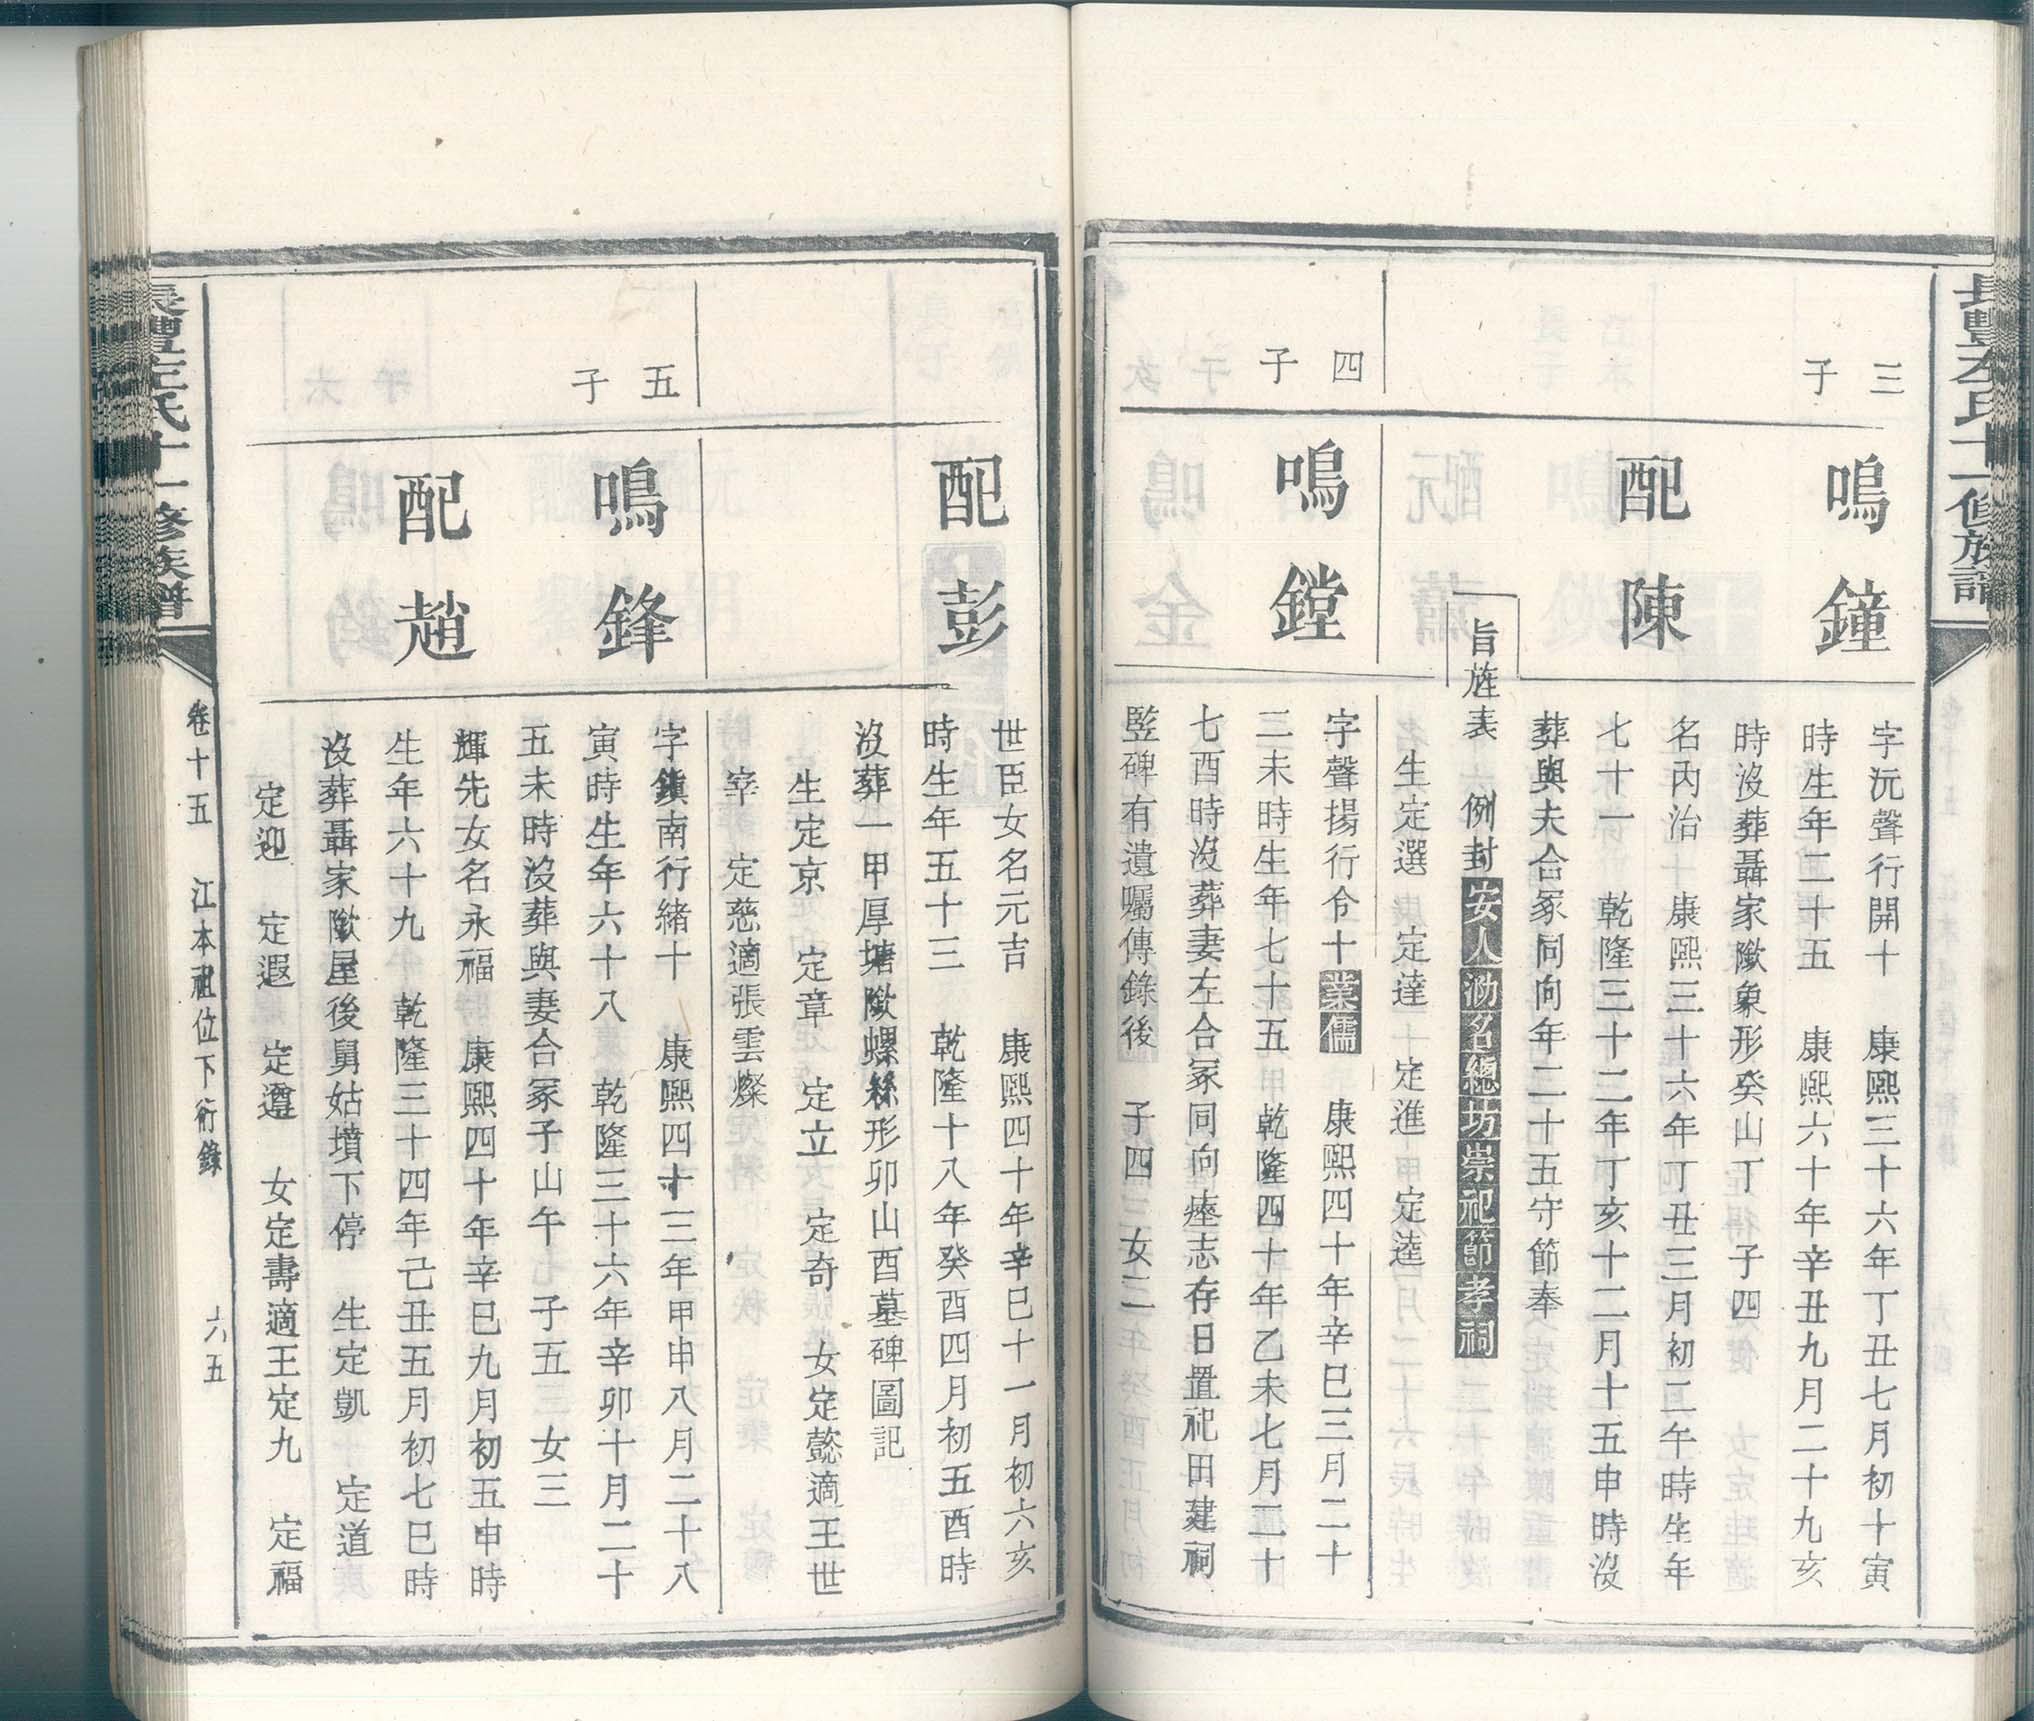 長豐左氏十一修族譜
三子
鳴鐘
字沅聲行開十　康熙三十六年丁丑七月初十寅
時生年二十五　康熙六十年辛丑九月二十九亥
時沒葬聶家歘象形癸山丁　子四
配陳
名內治　康熙三十六年丁丑三月初二午時生年
七十一　乾隆三十二年丁亥十二月十五申時沒
葬與夫合冢同向年二十五守節奉
旨旌表　例封安人泐名總坊崇祀節孝祠
生定選　定達　定進　定逵
四子
鳴鏜
字聲揚行令十業儒　康熙四十年辛巳三月二十
三未時生年七十五　乾隆四十年乙未七月二十
七酉時沒葬妻左合冢同向瘞志存日置祀田建祠
竪碑有遺囑傳錄後　子四　女二
配彭
世臣女名元吉　康熙四十年辛巳十一月初六亥
時生年五十三　乾隆十八年癸酉四月初五酉時
沒葬一甲厚塘歘螺絲形卯山酉墓碑圖記
生定京　定章　定立　定奇　女定懿適王世
宰　定慈適張雲燦
五子
鳴鋒
字鎮南行緒十　康熙四十三年甲申八月二十八
寅時生年六十八　乾隆三十六年辛卯十月二十
五未時沒葬與妻合冢子山午　子五　女三
配趙
輝先女名永福　康熙四十年辛巳九月初五申時
生年六十九　乾隆三十四年己丑五月初七巳時
沒葬聶家歘屋後舅姑墳下停　生定凱　定道
定迎　定遐　定遵　女定壽適王定九　定福
長豐左氏十一修族譜
卷十五　江本祖位下衍錄　六五